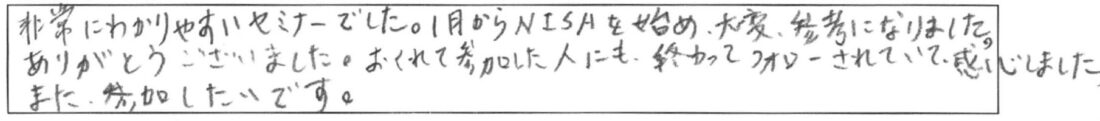 非常にわかりやすいセミナーでした。1月からNISAを始め、大変、参考になりました。
ありがとうございました。おくれて参加した人にも、終わってフォローされていて、感心しました。
また、参加したいです。